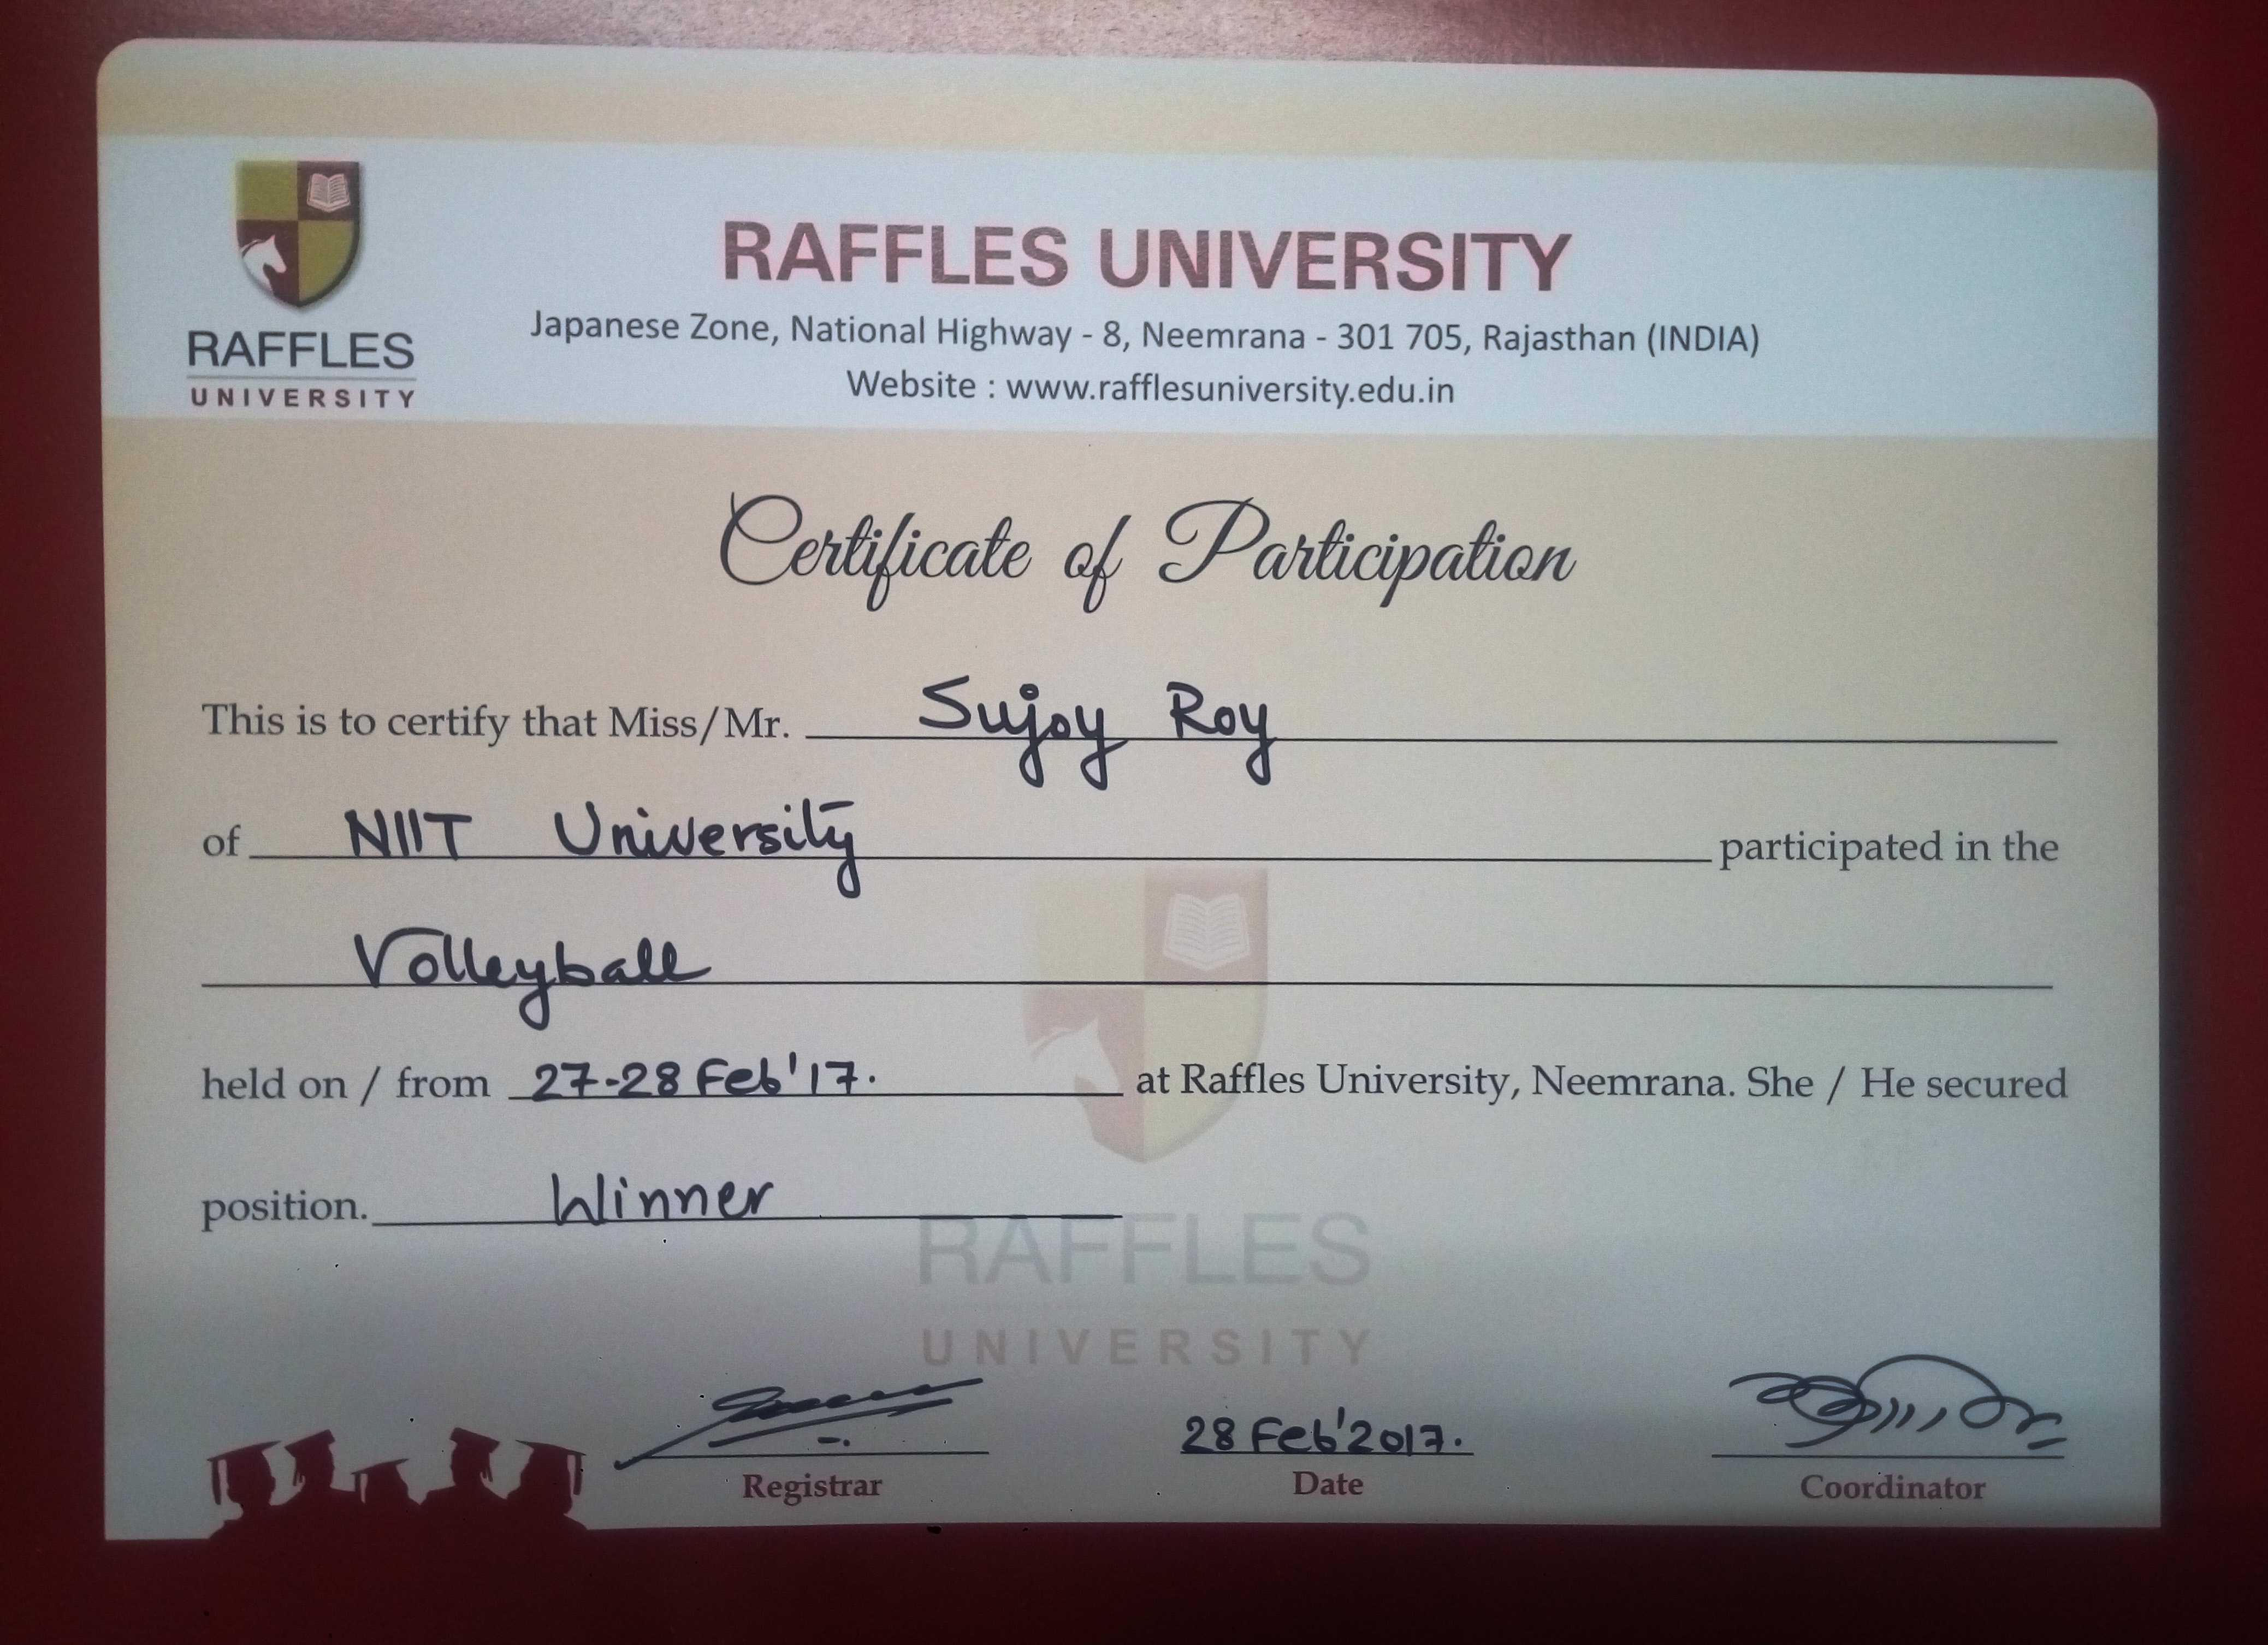 RAFFLES UNIVERSITY
Japanese Zone, National Highway - 8, Neemrana - 301 705, Rajasthan (INDIA)
Website : www.rafflesuniversity.edu.in
RAFFLES
UNIVERSITY
Certificate of Participation
This is to certify that Miss/Mr. Sujoy Roy
of NIIT University participated in the
Volleyball
held on / from 27-28 Feb'17. at Raffles University, Neemrana. She / He secured
position. Winner
RAFFLES
UNIVERSITY
28 Feb'2017.
Registrar Date Coordinator